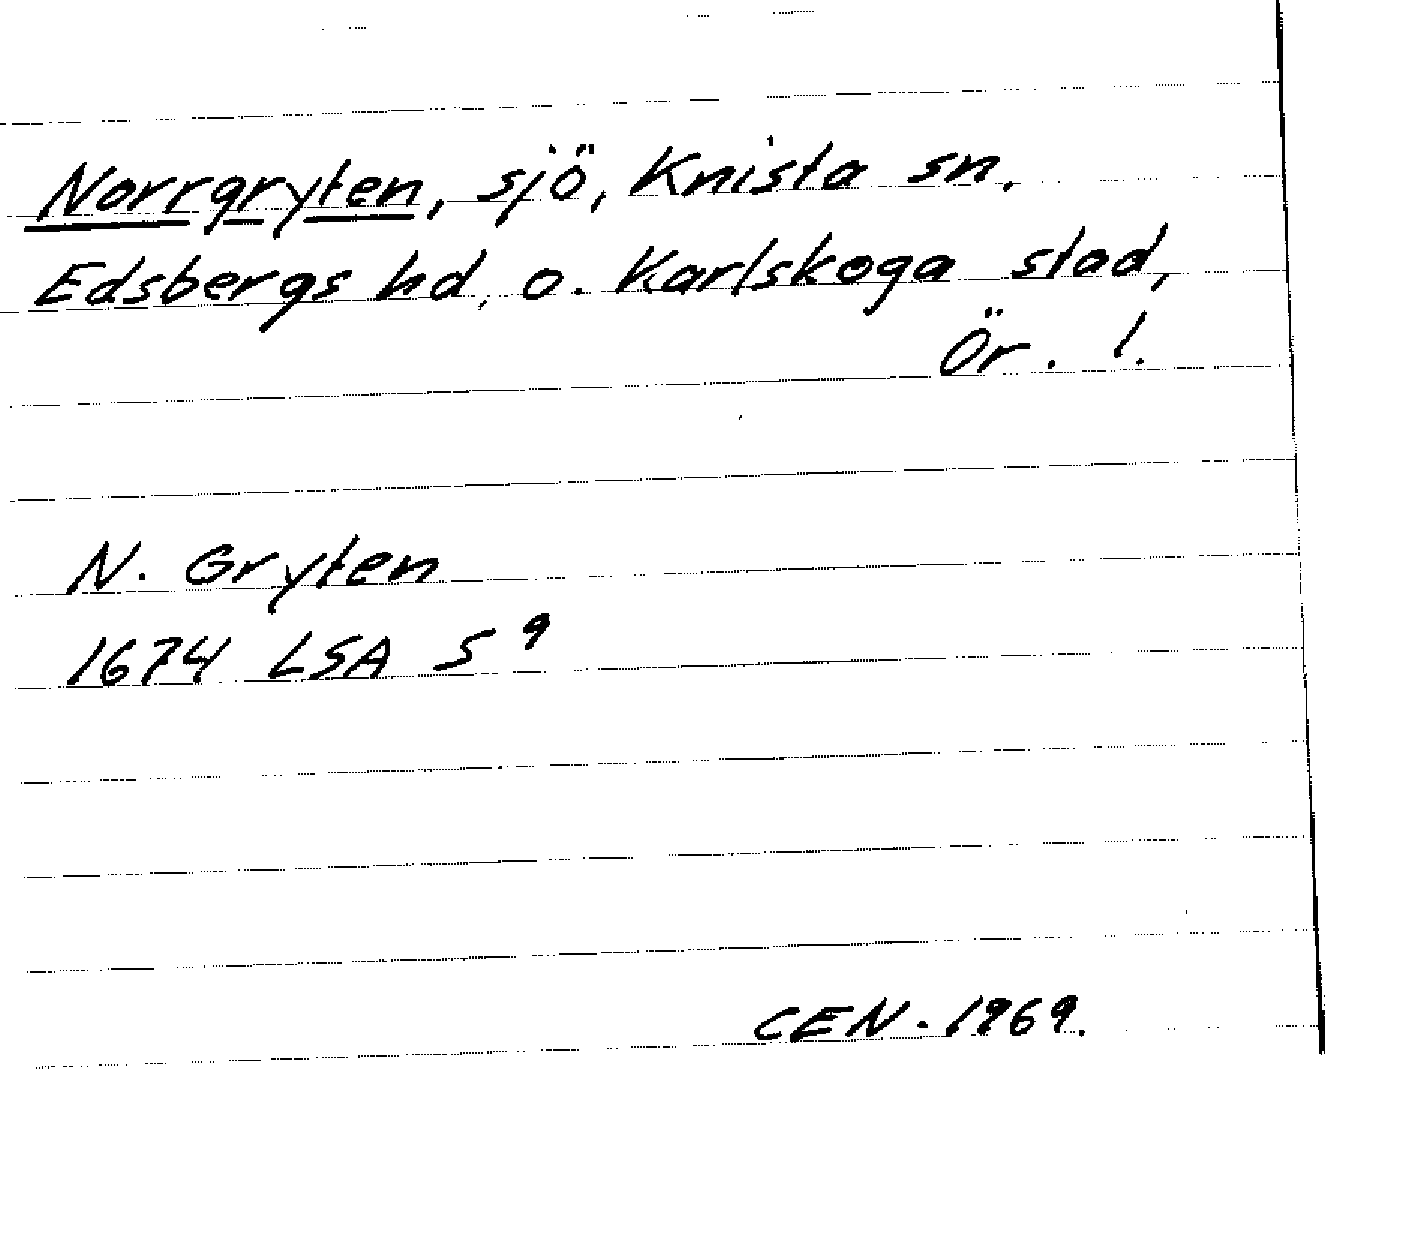 Norrgryten, sjö, Knista sn,
Edsbergs hd, o. Karlskoga stad,
Ör. l.
N. Gryten
1674 LSA S 9
CEN. 1969.